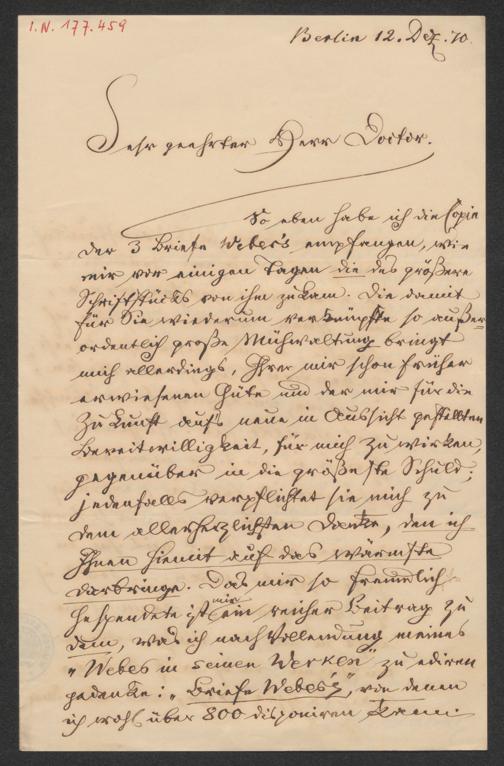 I.N. 177.459
Berlin 12. Dez. 70.
Sehr geehrter Herr Doctor.
So eben habe ich die Copie
der 3 Briefe Weber's empfangen, wie
mir vor einigen Tagen die des größere
Schriftstücks von ihm zukam. Die damit
für Sie wiederum verknüpfte so außer-
ordentlich große Mühwaltung bringt
mich allerdings, Ihrer mir schon früher
erwiesenen Güte und der mir für die
Zukunft aufs neue in Aussicht gestellten
Bereitwilligkeit, für mich zu wirken,
gegenüber in die größeste Schuld;
jedenfalls verpflichtet sie mich zu
dem allerherzlichsten Danke, den ich
Ihnen hiemit auf das wärmste
darbringe. Das mir so freundlich
Gespendete ist mir ein reicher Beitrag zu
dem, was ich nach Vollendung meines
„Weber in seinen Werken" zu ediren
gedenke: „Briefe Weber's", von denen
ich wohl über 800 disponiren kann.